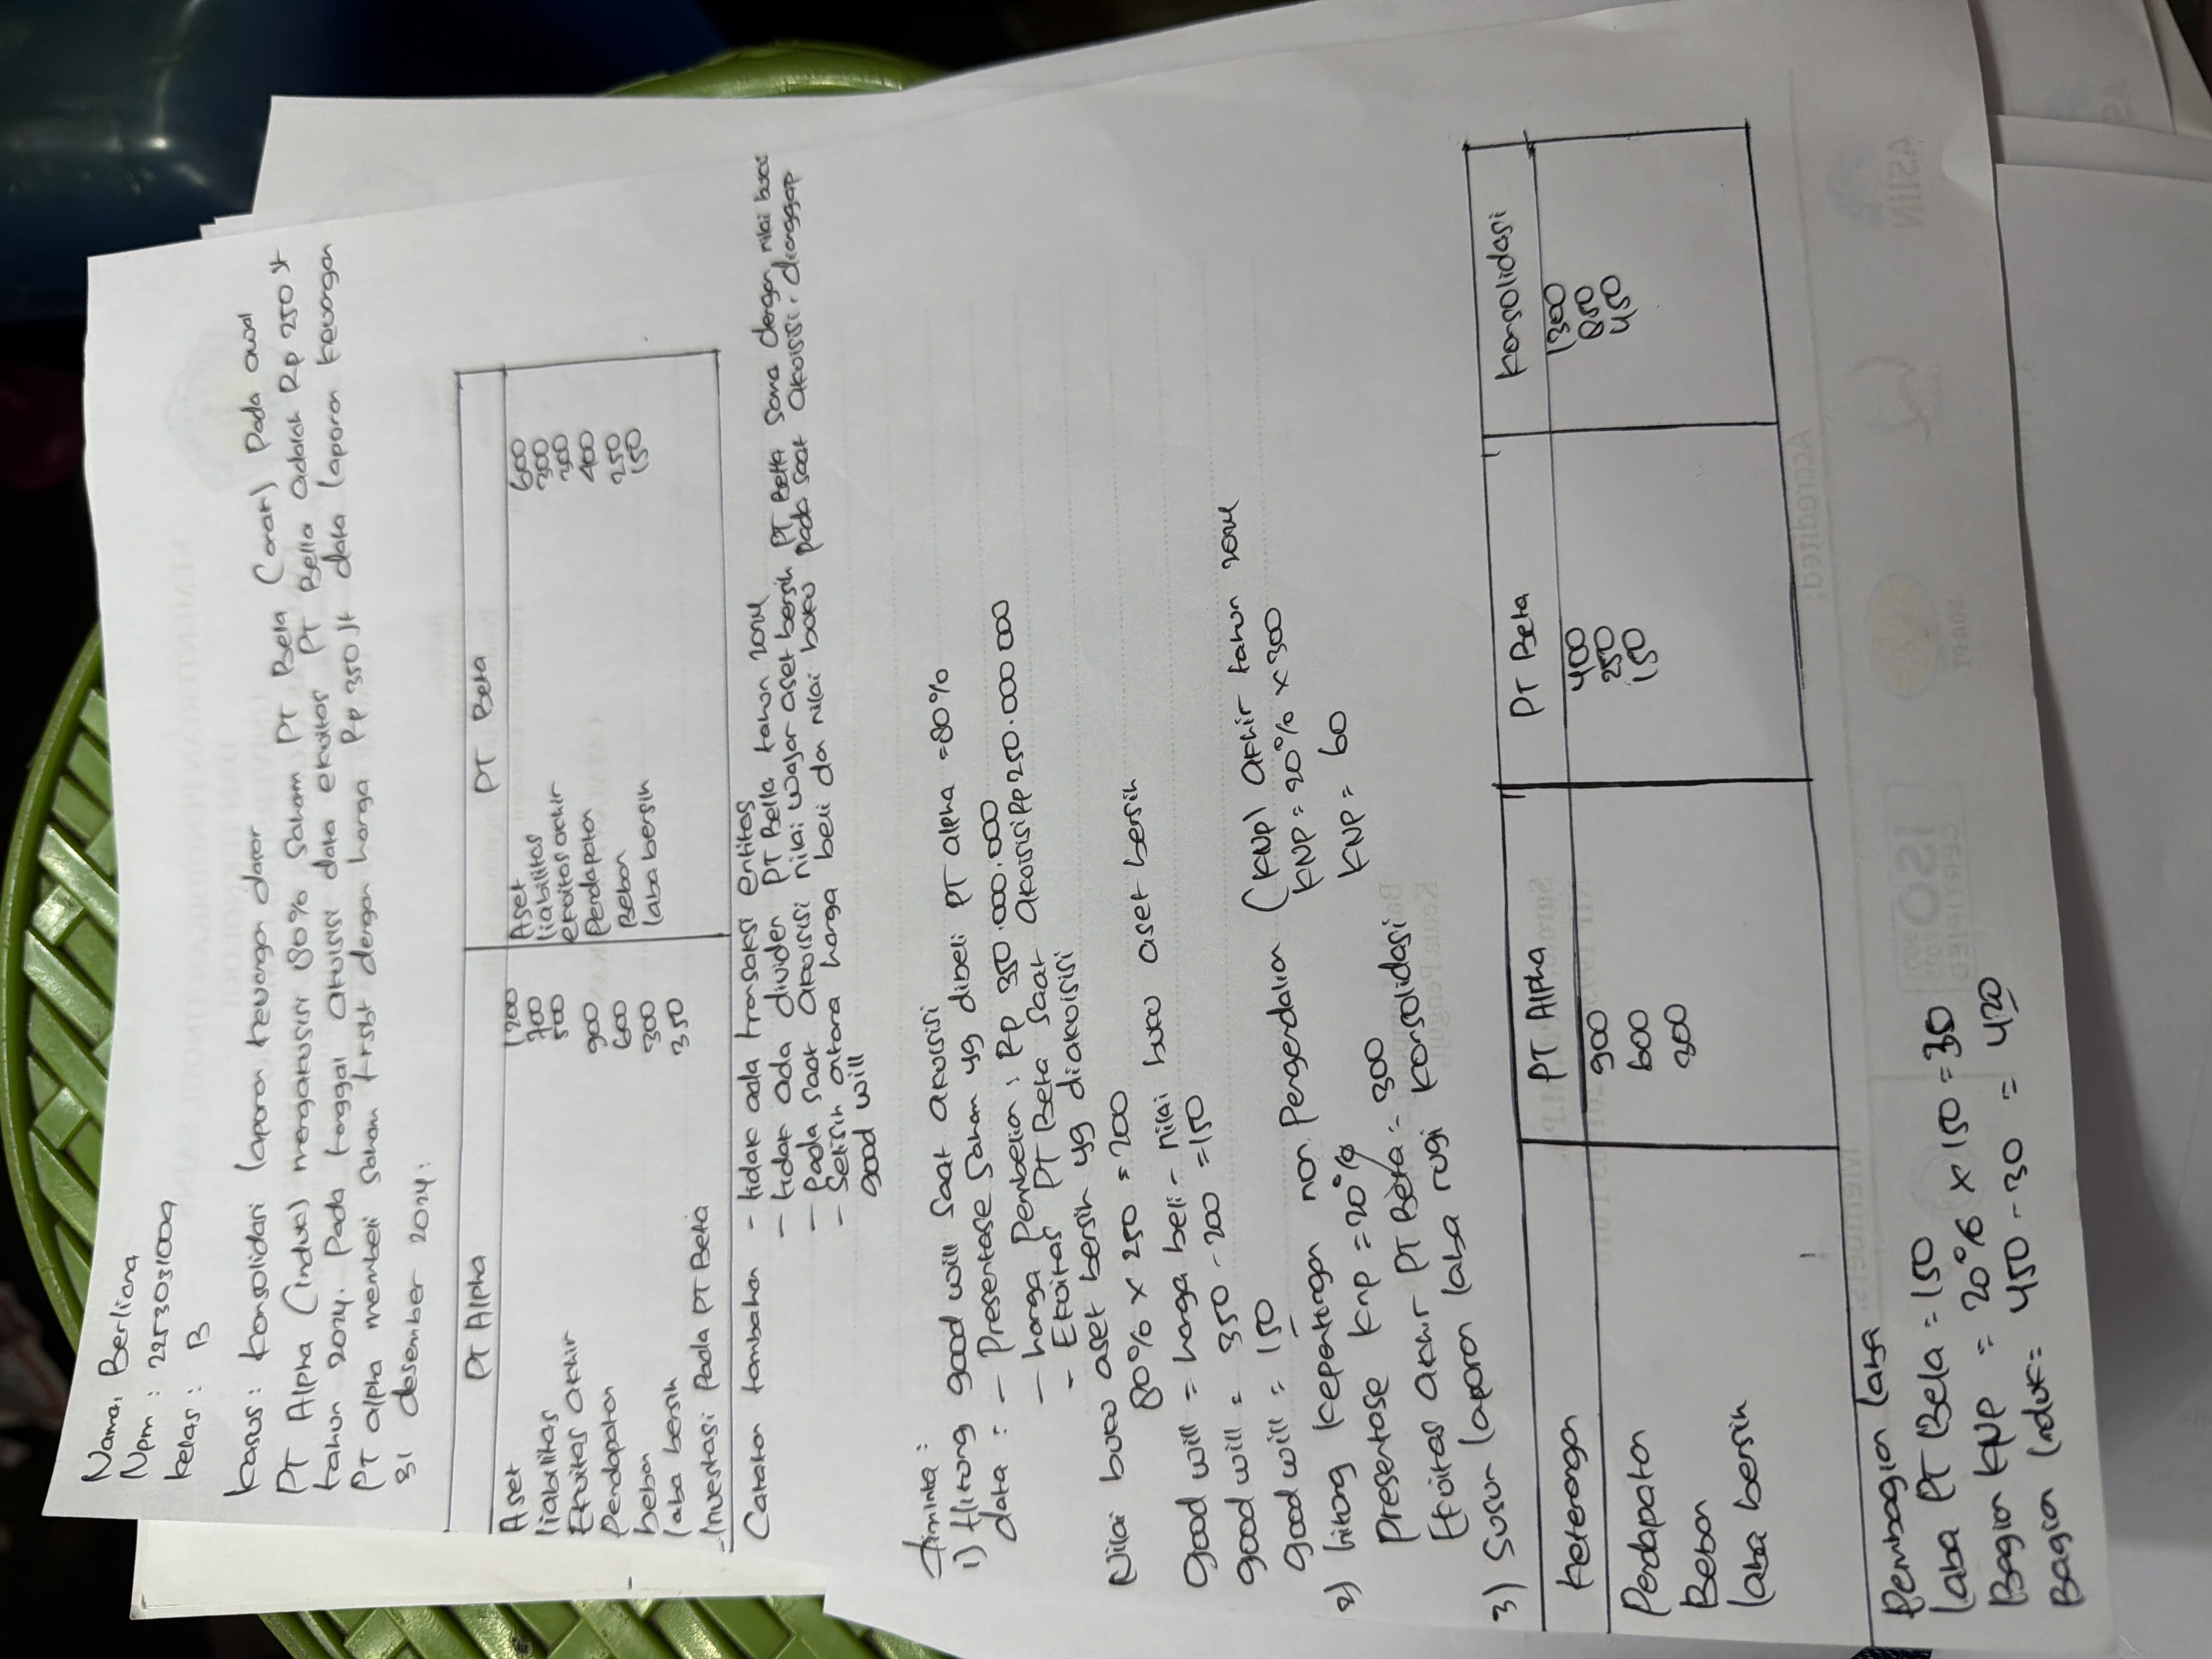 Nama: Berliana
Npm : 2253031009
Kelas : B
Kasus : Konsolidari laporan keuangan dasar
PT Alpha (induk) mengakusisi 80% Saham PT Bela (anak) Pada awal
tahun 2024. Pada tanggal akuisisi data ekuitas PT Bella adalah Rp 250 Jt
PT alpha membeli saham trsbt dengan harga Rp 350 Jt data laporan keuangan
31 desember 2024:
PT Alpha PT Beta
Aset 1200 Aset 600
liabilitas 700 liabilitas 300
Ekuitas akhir 500 ekuitas akhir 300
Pendapatan 900 Pendapatan 400
beban 600 Beban 250
laba bersih 300 laba bersih 150
- Investasi Pada PT Beta 350
Catatan tambahan - tidak ada transaksi entitas
- tidak ada dividen PT Bella tahun 2024
- Pada saat akuisisi nilai wajar aset bersih PT Betta sama dengan nilai buku
- Selisih antara harga beli dan nilai buku pada saat akuisisi dianggap
good will
diminta :
1) Hitung good will saat akuisisi
data : - Presentase saham yg dibeli PT alpha = 80%
- harga Pembelian : Rp 350.000.000
- Ekuitas PT Beta saat akuisisi Rp 250.000 000
Nilai buku aset bersih yg diakuisisi
80% x 250 = 200
Good will = harga beli - nilai buku aset bersih
good will = 350 - 200 = 150
good will = 150
2) hitung kepentingan non Pengendalian (KNP) akhir tahun 2024
Presentase Knp = 20% KNP = 20% x 300
Ekuitas akhir PT Beta = 300 KNP = 60
3) Susun laporan laba rugi konsolidasi
Keterangan PT Alpha PT Beta Konsolidasi
Pendapatan 900 400 1300
Beban 600 250 850
laba bersih 300 150 450
Pembagian laba
laba PT Bela = 150
Bagian KNP = 20% x 150 = 30
Bagian Induk = 450 - 30 = 420
ASIIN
Accredited
ISO
CERTIFIED